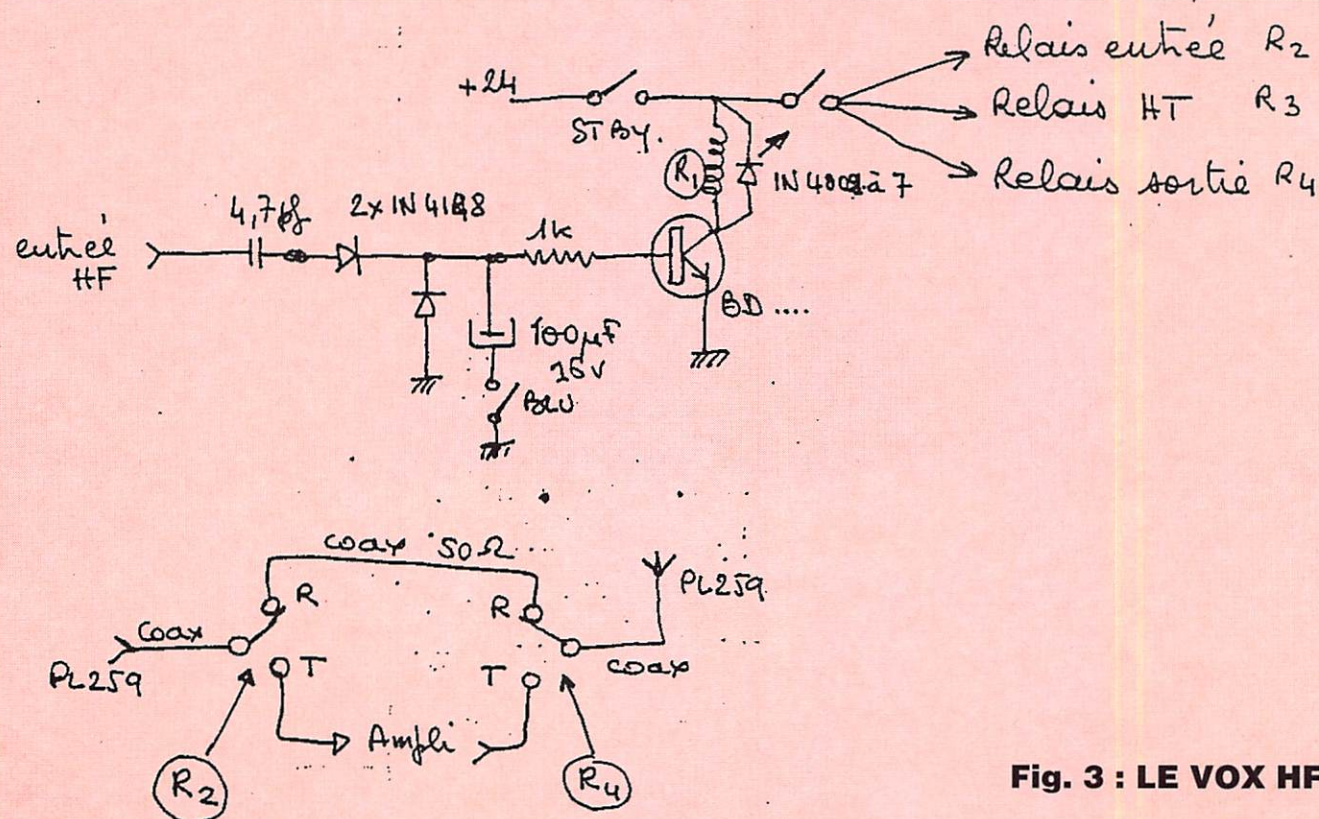 +24
STBY.
Relais entrée R2
Relais HT R3
Relais sortie R4
R1
1N400 à 7
entrée
HF
4,7pf
2x1N4148
1k
BD ....
100µF
16v
BLU
coax 50Ω
R
R
PL259
coax
PL259
T
T
coax
Ampli
R2
R4
Fig. 3 : LE VOX HF